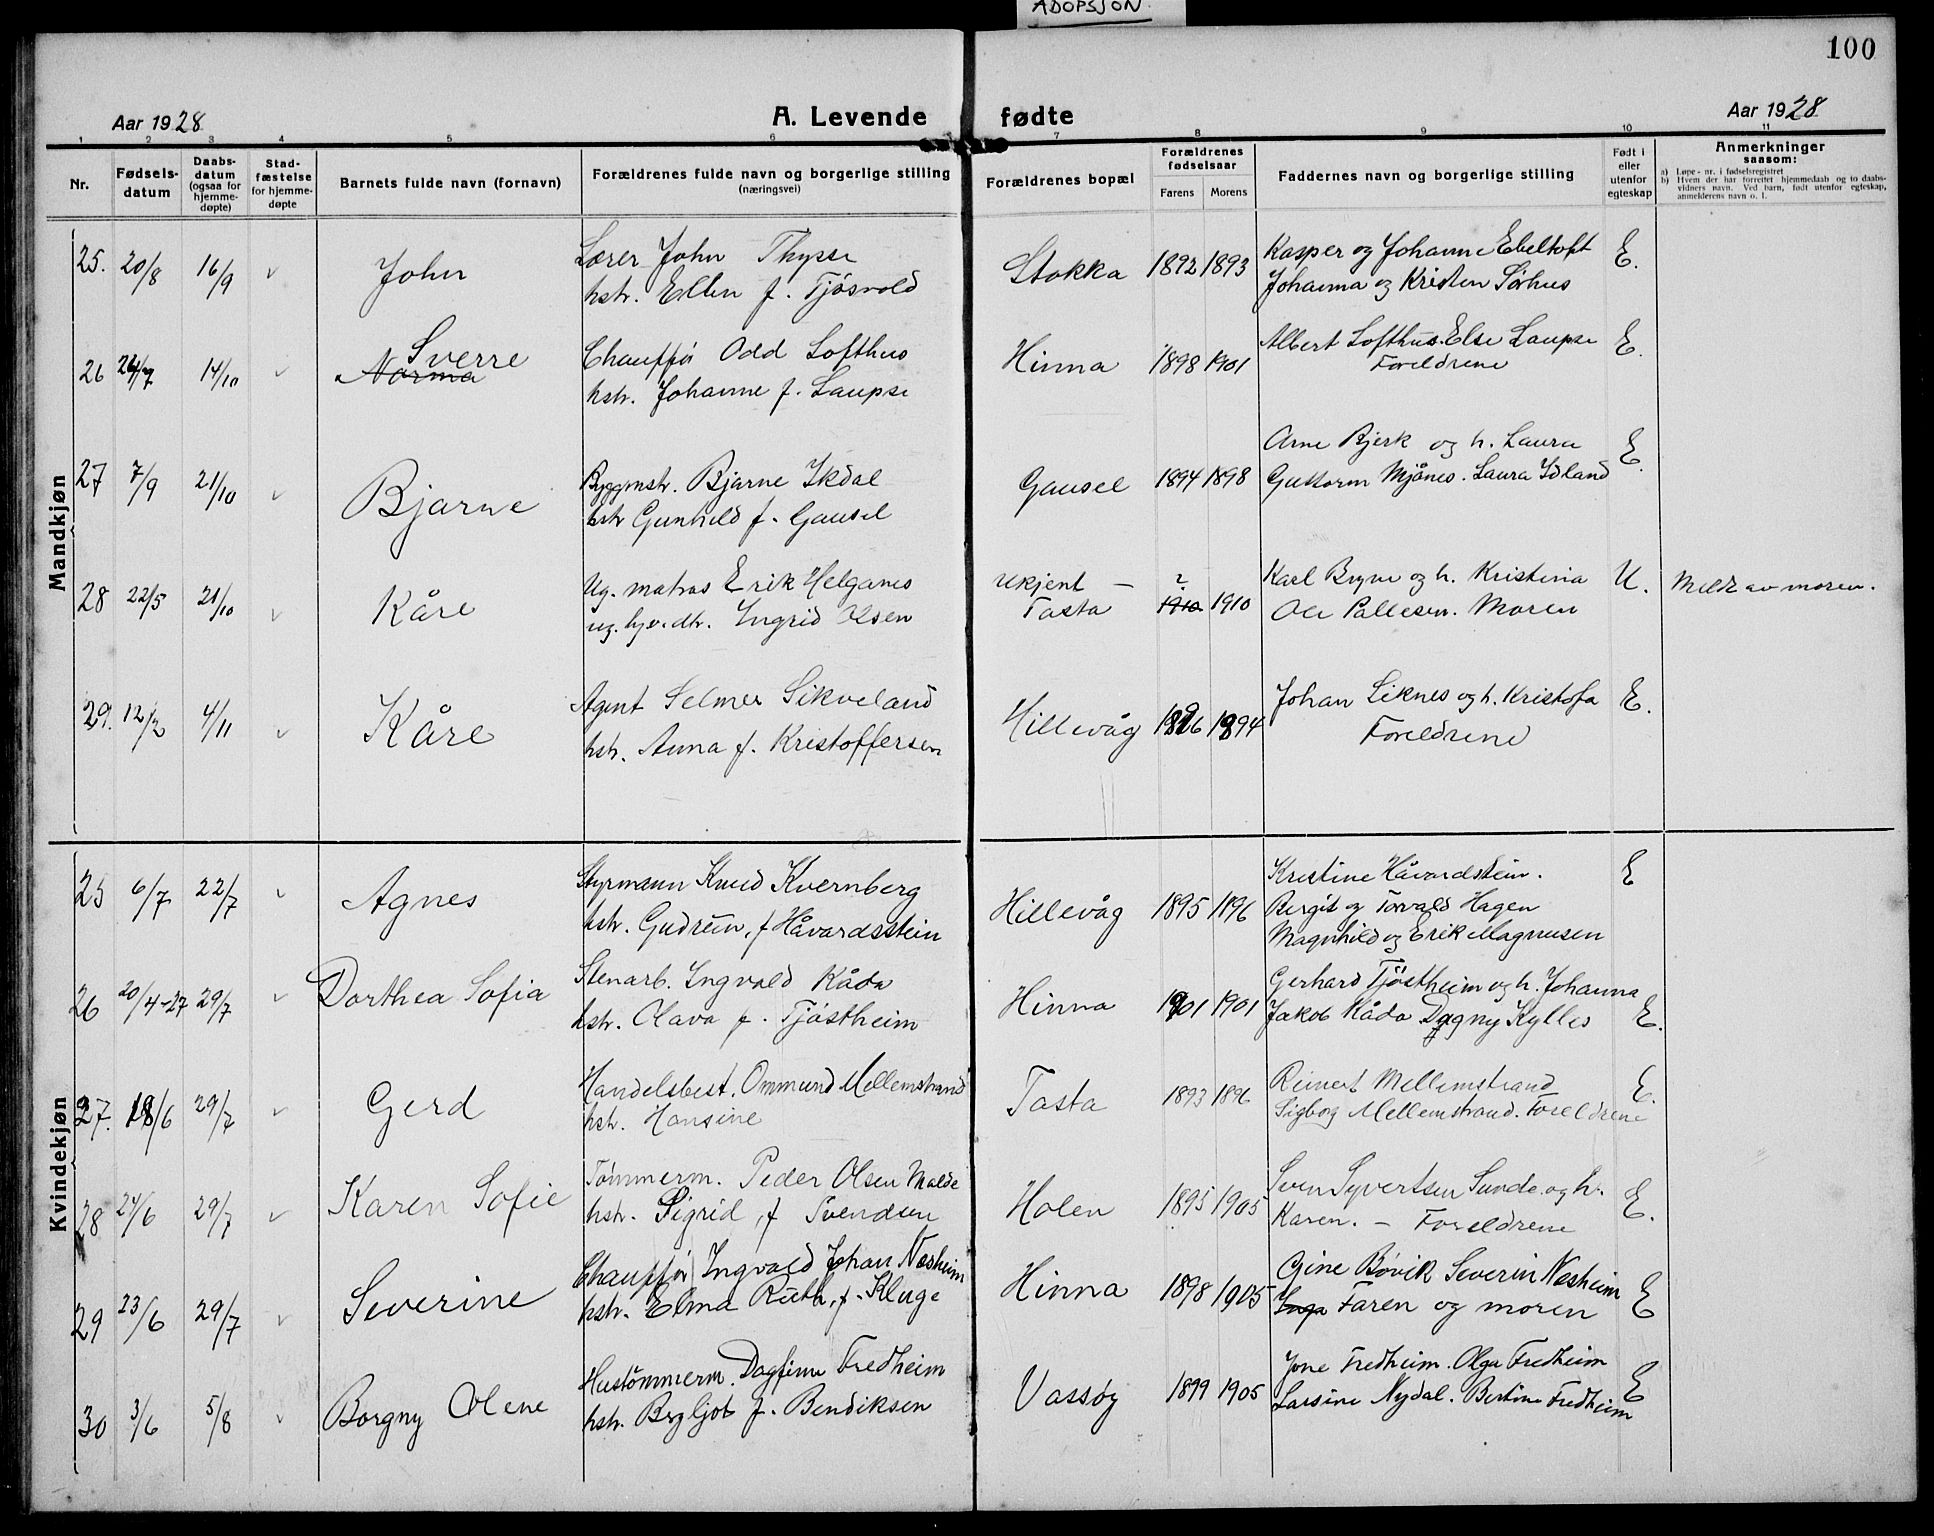 ADOPSJON.
100
Aar 1928 A. Levende fødte Aar 1928
1 2 3 4 5 6 7 8 9 10 11
Nr. Fødsels-datum Daabs-datum (ogsaa for hjemme-døpte) Stad-fæstelse for hjemme-døpte Barnets fulde navn (fornavn) Forældrenes fulde navn og borgerlige stilling (næringsvei) Forældrenes bopæl Forældrenes fødselsaar Farens Morens Faddernes navn og borgerlige stilling Født i eller utenfor egteskap Anmerkninger saasom:
a) Løpe-nr. i fødselsregistret
b) Hvem der har forrettet hjemmedaab og to daabs-vidners navn. Ved barn, født utenfor egteskap, anmelderens navn o. l.
Mandkjøn
25. 20/8 16/9 John Lærer John Thysse Stokka 1892 1893 Kasper og Johanne Ebeltoft E.
hstr. Ellen f. Tjøsvold Johanna og Kristen Sørhus
26 24/7 14/10 Norma Sverre Chauffør Odd Lofthus Hinna 1898 1901 Albert Lofthus. Else Laupse E.
hstr. Johanne f. Laupse Foreldrene
27 7/9 21/10 Bjarne Byggmstr. Bjarne Ikdal Gausel 1894 1898 Arne Bjerk og h. Laura E.
hstr Gunhild f. Gausel Guttorm Mjånes. Laura Idland
28 22/5 21/10 Kåre Ug. matros Erik Helganes ukjent – ? Karl Bryne og h. Kristina U. Meldt av moren.
ug. hjv. dtr. Ingrid Olsen Tasta 1910 1910 Ole Pallesen. Moren
29. 12/2 4/11 Kåre Agent Selmer Sikveland Hillevåg 1896 1894 Johan Siknes og h. Kristofa E.
hstr. Anna f. Kristoffersen Foreldrene
Kvindekjøn
25 6/7 22/7 Agnes Styrmann Knud Kvernberg Hillevåg 1895 1896 Kristine Håvardstein. E
hstr. Gudrun, f Håvardsstein Bergit og Torvald Hagen
Magnhild og Erik Magnusen
26 20/4-27 29/7 Dorthea Sofia Stenarb. Ingvald Kåda Hinna 1901 1901 Gerhard Tjøstheim og h. Johanna E.
hstr. Olava f. Tjøstheim Jakob Kåda Dagny Kylles
27. 18/6 29/7 Gerd Handelsbest. Ommund Mellemstrand Tasta 1893 1896 Reinert Mellemstrand E.
hstr. Hansine Sigborg Mellemstrand. Foreldrene
28 24/6 29/7 Karen Sofie Tømmerm. Peder Olsen Malde Holen 1895 1905 Sven Syvertsen Sunde og h. E.
hstr. Sigrid, f Svendsen Karen. – Foreldrene
29 23/6 29/7 Severine Chauffør Ingvald Johan Næsheim Hinna 1898 1905 Gine Bøvik Severin Næsheim E
hstr. Elma Ruth, f. Kluge Inga Faren og moren
30 3/6 5/8 Borgny Olene Hustømmerm. Dagfinn Fredheim Vassøy 1899 1905 Jone Fredheim. Olga Fredheim E
hstr. Bergljot f. Bendiksen Larsine Nydal. Bertine Fredheim